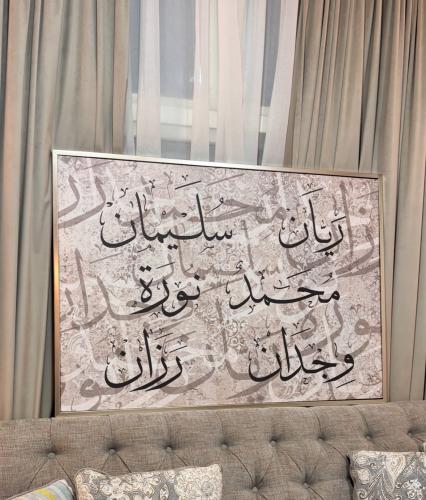 رَيَّان سُلَيمان
مُحَمَد نورَة
وِجدَان رَزَان